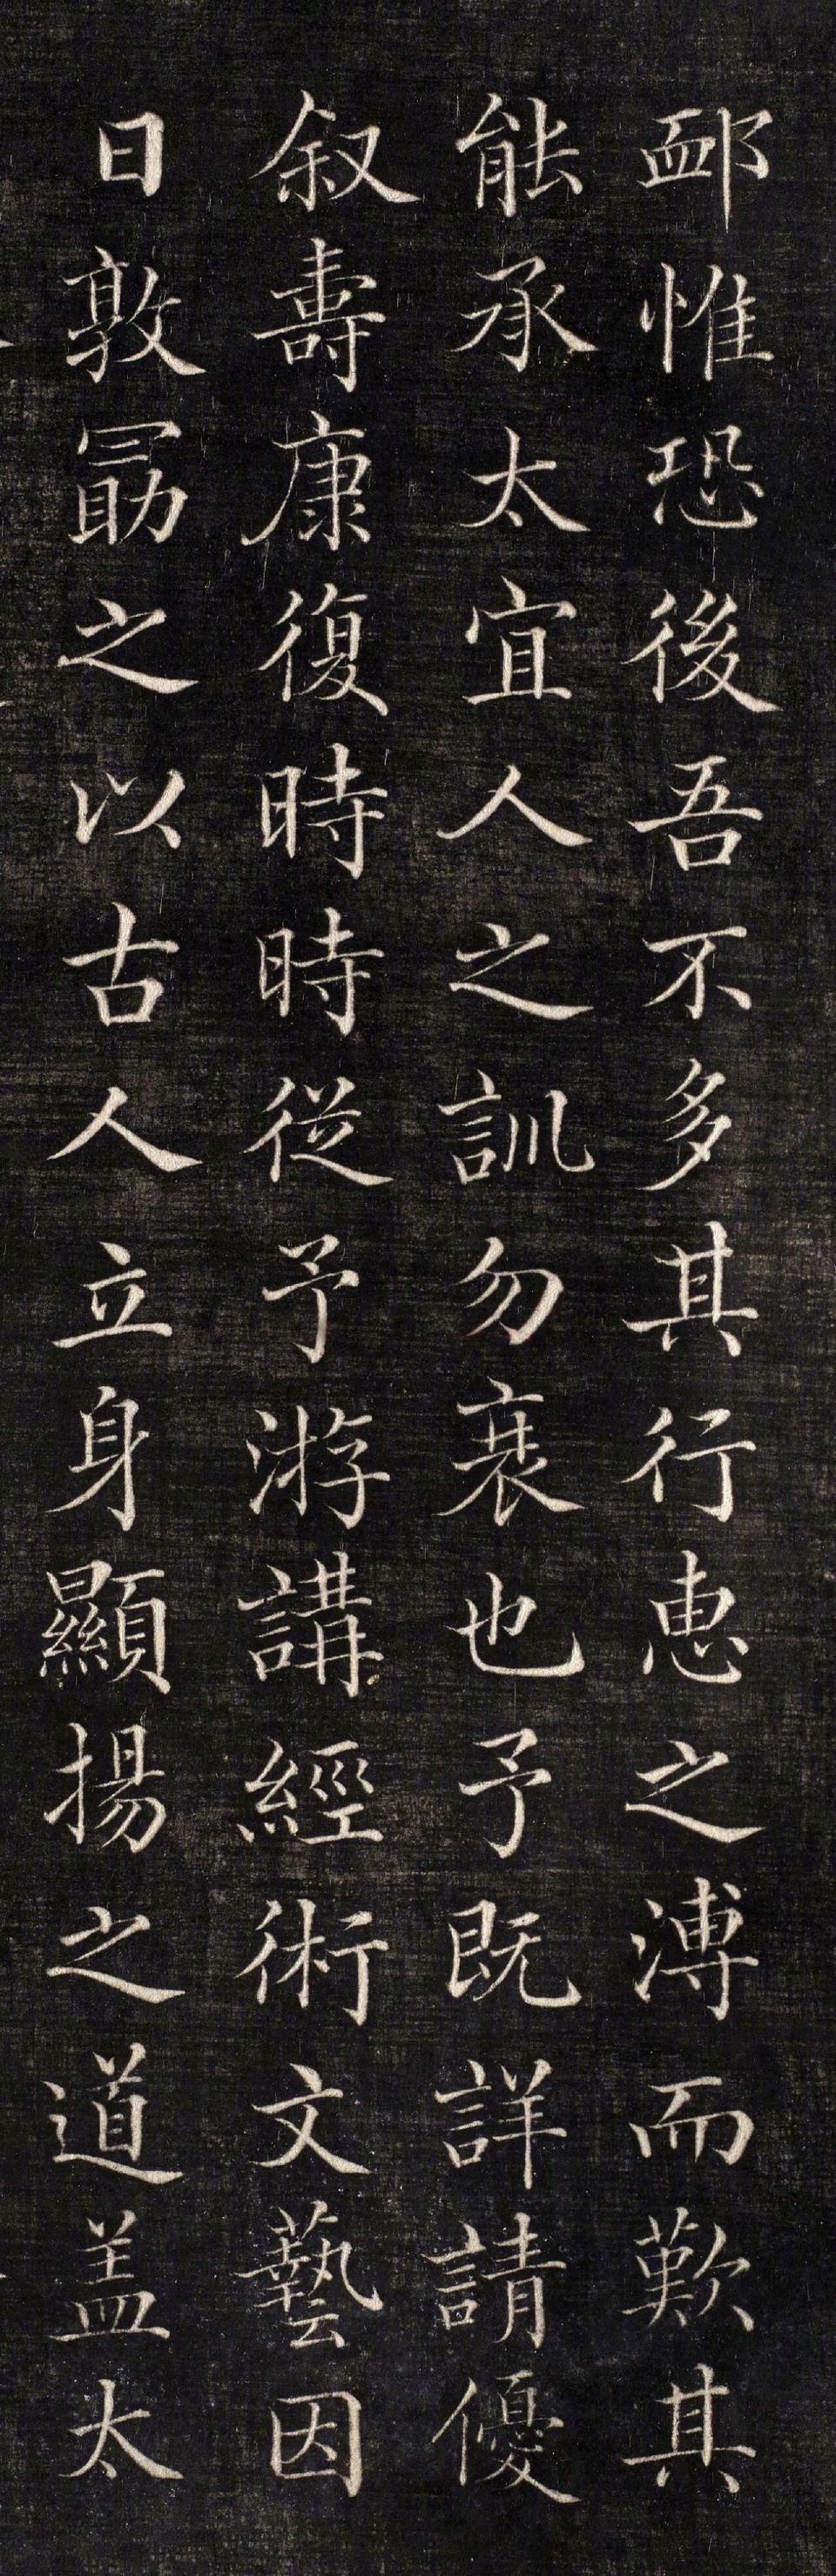 卹惟恐後吾不多其行恵之溥而歎其
能承太宜人之訓勿衰也予既詳請優
叙壽康復時時従予游講經術文藝因
日敦勗之以古人立身顯揚之道盖太